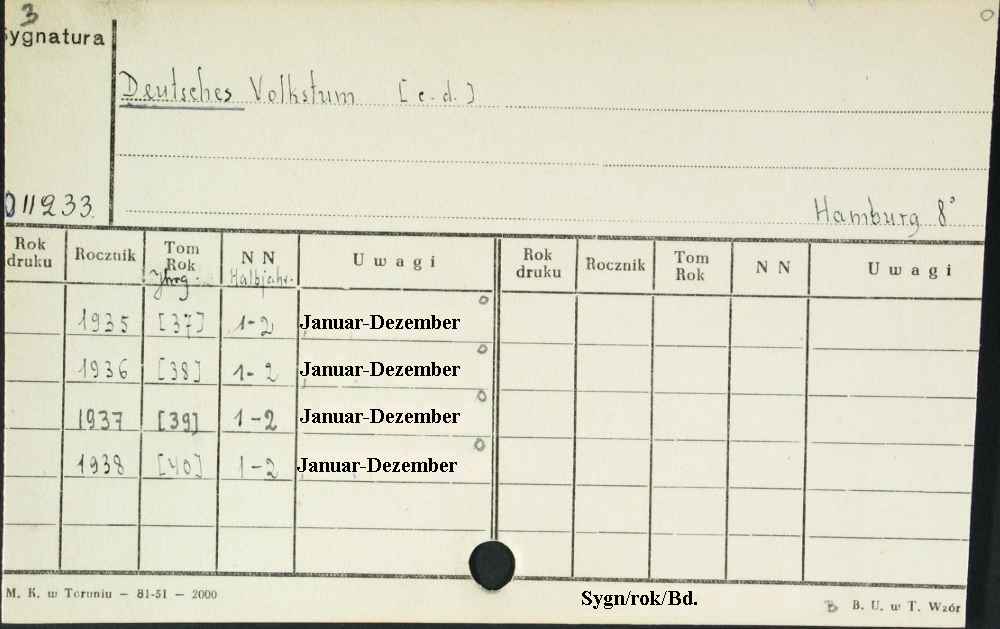 3
Sygnatura
Deutsches Volkstum [c.d.]
011233
Hamburg 8°
Rok druku Rocznik Tom Rok N N Uwagi Rok druku Rocznik Tom Rok N N Uwagi
Jhrg. Halbjahr.
1935 [37] 1-2 Januar-Dezember
1936 [38] 1-2 Januar-Dezember
1937 [39] 1-2 Januar-Dezember
1938 [40] 1-2 Januar-Dezember
M. K. w Toruniu — 81-51 — 2000
Sygn/rok/Bd.
B B. U. w T. Wzór